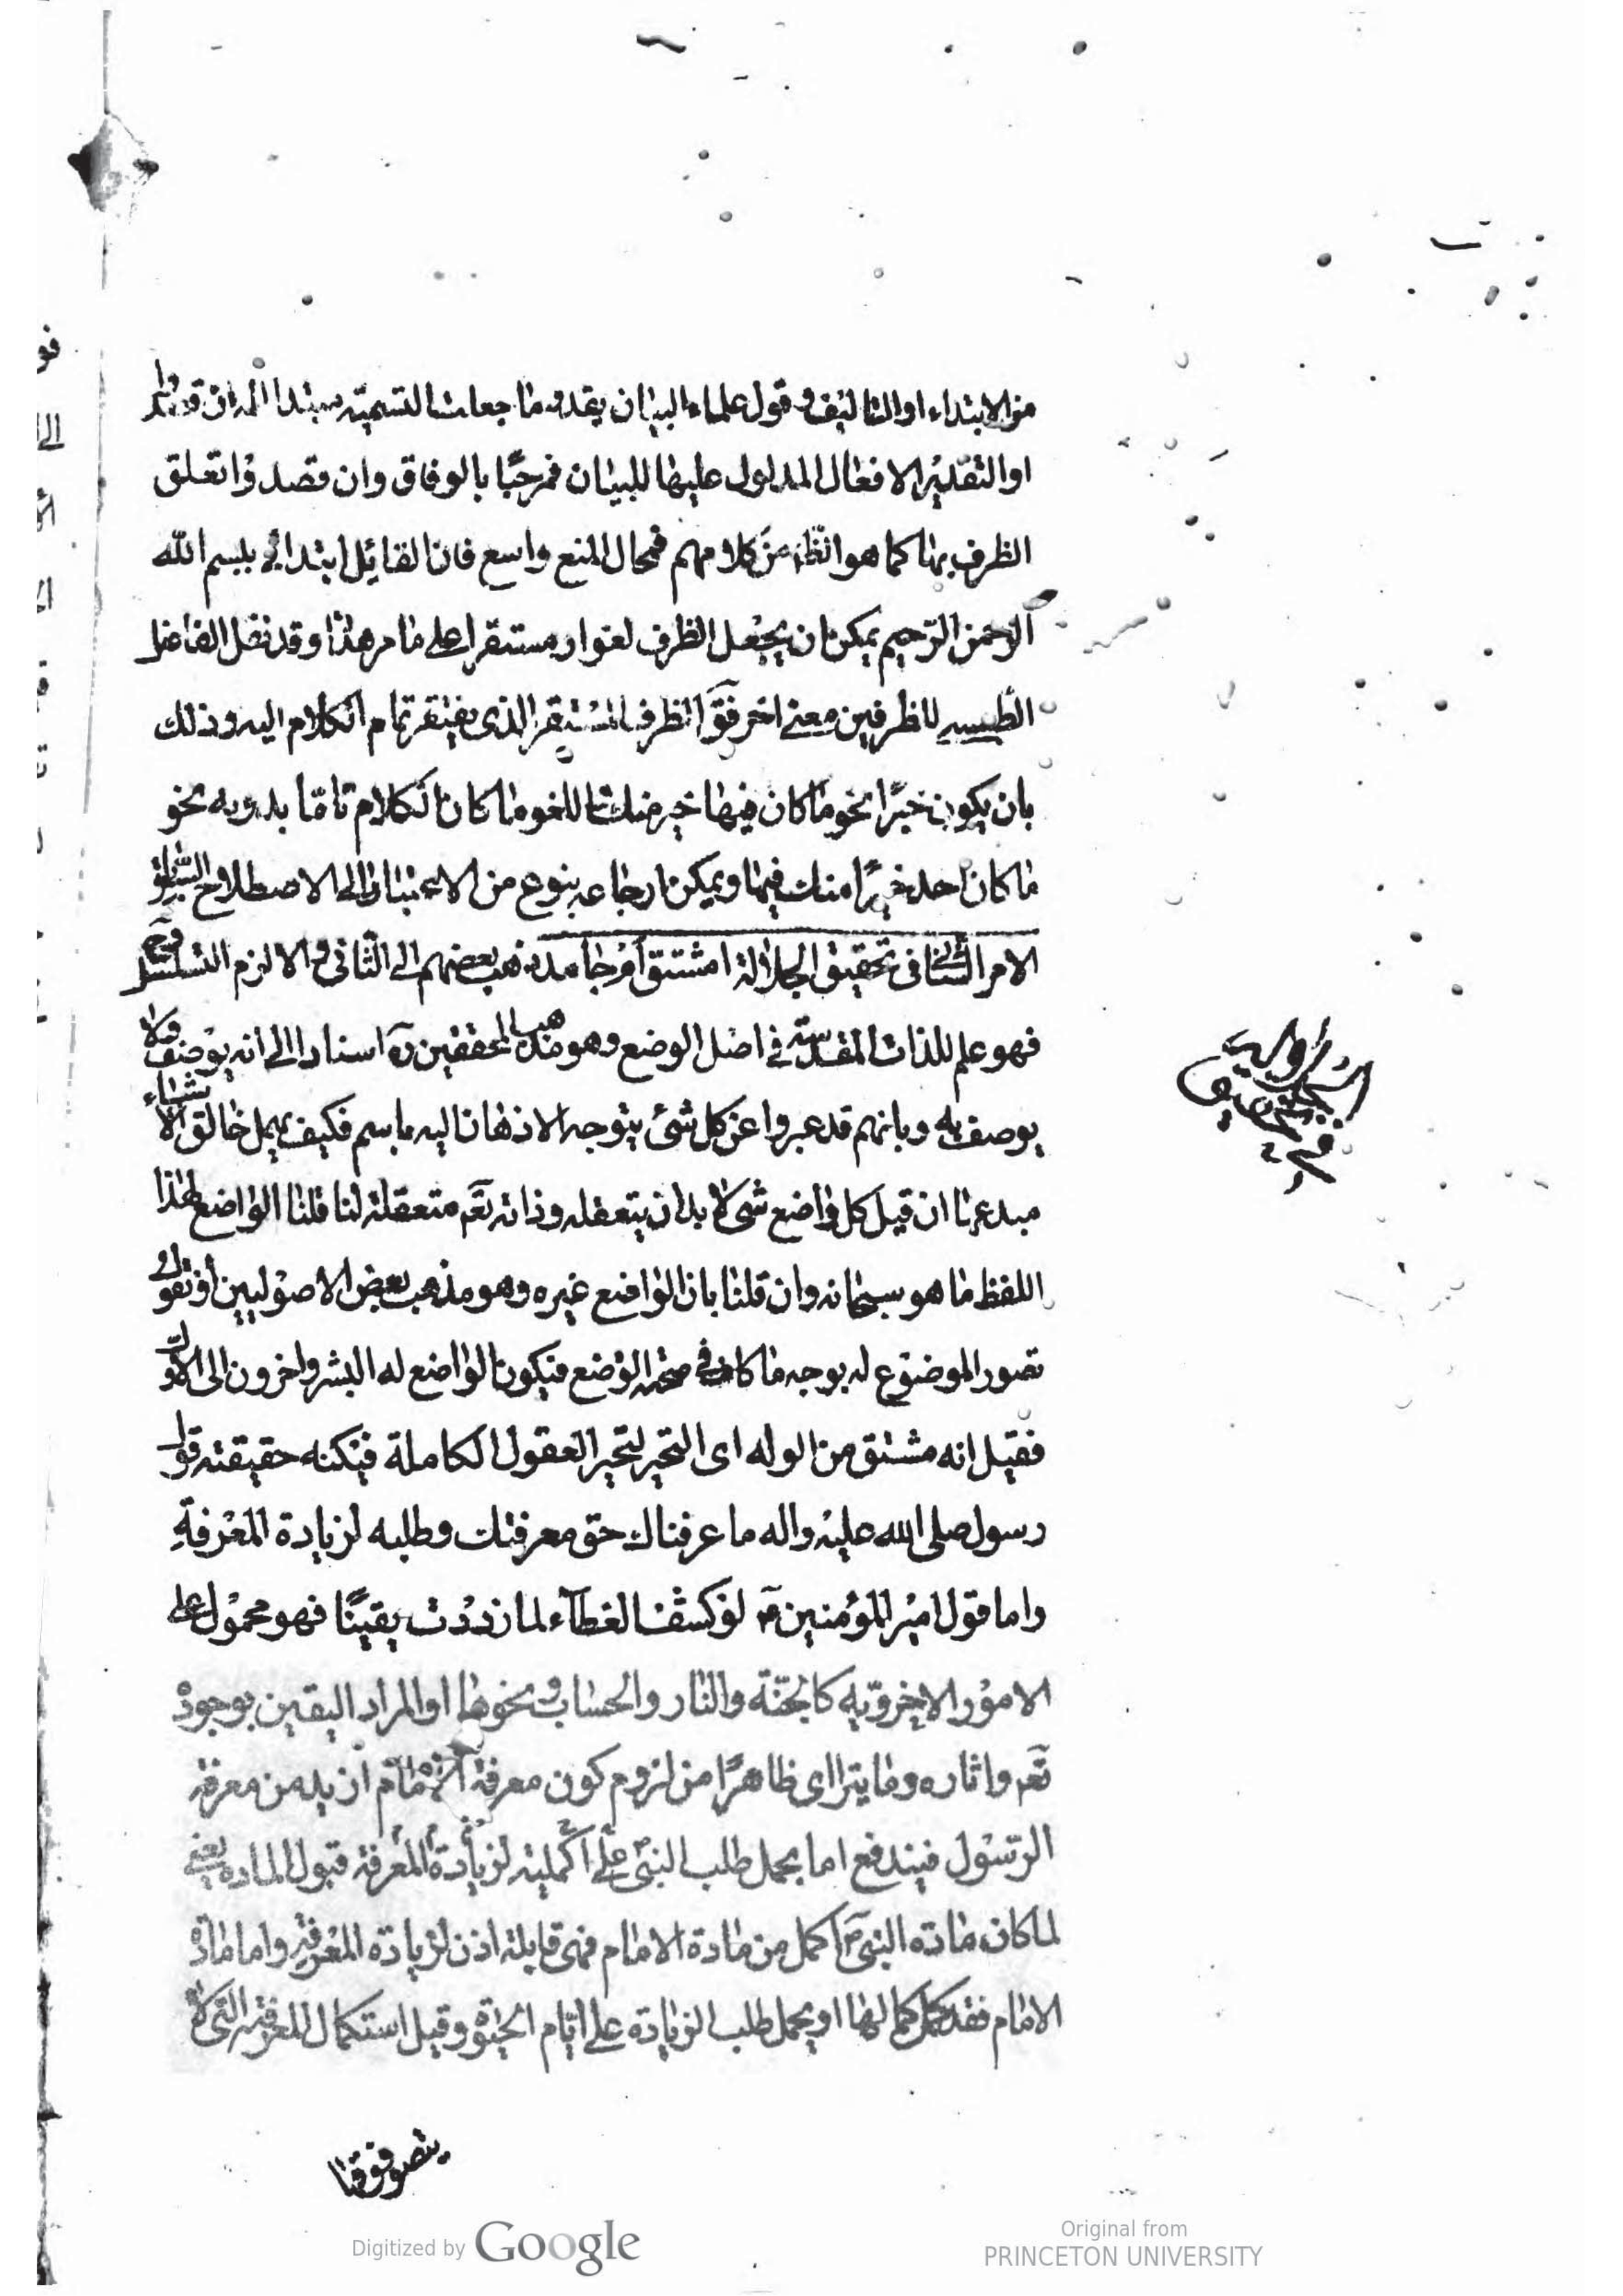 من الابتداء او التاليف و قول علماء البيان يقدر ما جعلت التسمية مبتدا له ان قصدوا
او التقدير الافعال المدلول عليها للبيان فمرحبًا بالوفاق وان قصدوا تعلق
الظرف بها كما هو الظاهر من كلامهم فمجال المنع واسع فان القائل ابتدائى ببسم الله
الرحمن الرحيم يمكن ان يجعل الظرف لغوا و مستقرا على ما مر هذا وقد نقل الفاضل
الطبسى للظرفين معنى اخر فق الظرف المستقر الذى يفتقر تمام الكلام اليه وذلك
بان يكون خبرًا نحو ما كان فيها خير منك واللغو ما كان الكلام تاما بدونه نحو
ما كان احد خيرًا منك فيها ويمكن ارجاعه بنوع من الاعتبار الى الاصطلاح السابق
الامر الثانى فى تحقيق الجلالة امشتق أم جامد ذهب بعضهم الى الثانى والا لزم التسلسل
فهو علم للذات المقدسة فى اصل الوضع وهو مذهب المحققين اسنادا الى انه يوصف ولا
يوصف به وبانهم قد عبروا عن كل شئ يتوجه الاذهان اليه باسم فكيف يهمل خالق الاشياء
مبدعها ان قيل كل واضع شى لا بد ان يتعقله وذاته تعم متعقلة لنا قلنا الواضع لهذا
اللفظ ما هو سبحانه وان قلنا بان الواضع غيره وهو مذهب بعض الاصوليين او نقول
تصور الموضوع له بوجه ما كاف فى صحة الوضع فيكون الواضع له البشر واخرون الى الاول
فقيل انه مشتق من الوله اى التحير لتحير العقول الكاملة فى كنه حقيقته قول
رسول صلى الله عليه واله ما عرفناك حق معرفتك وطلبه لزيادة المعرفةِ
واما قول امير المؤمنين لو كشف الغطآء لما ازددت يقينًا فهو محمول على
الامور الاخروية كالجنّة والنار والحساب ونحوها او المراد اليقين بوجوده
تعم واثاره وما يترااى ظاهرًا من لزوم كون معرفة الامام ازيد من معرفة
الرسول فيندفع اما بحمل طلب النبى على اكملية لزيادة المعرفة قبول المادة يعنى
لما كان مادة النبى اكمل من مادة الامام فهى قابلة اذن لزيادة المعرفة واما مادة
الامام فقد كمل كمالها او بحمل طلب الزيادة على ايام الحيوة وقبل استكمال المعرفة التى لا
يتصور فوقها